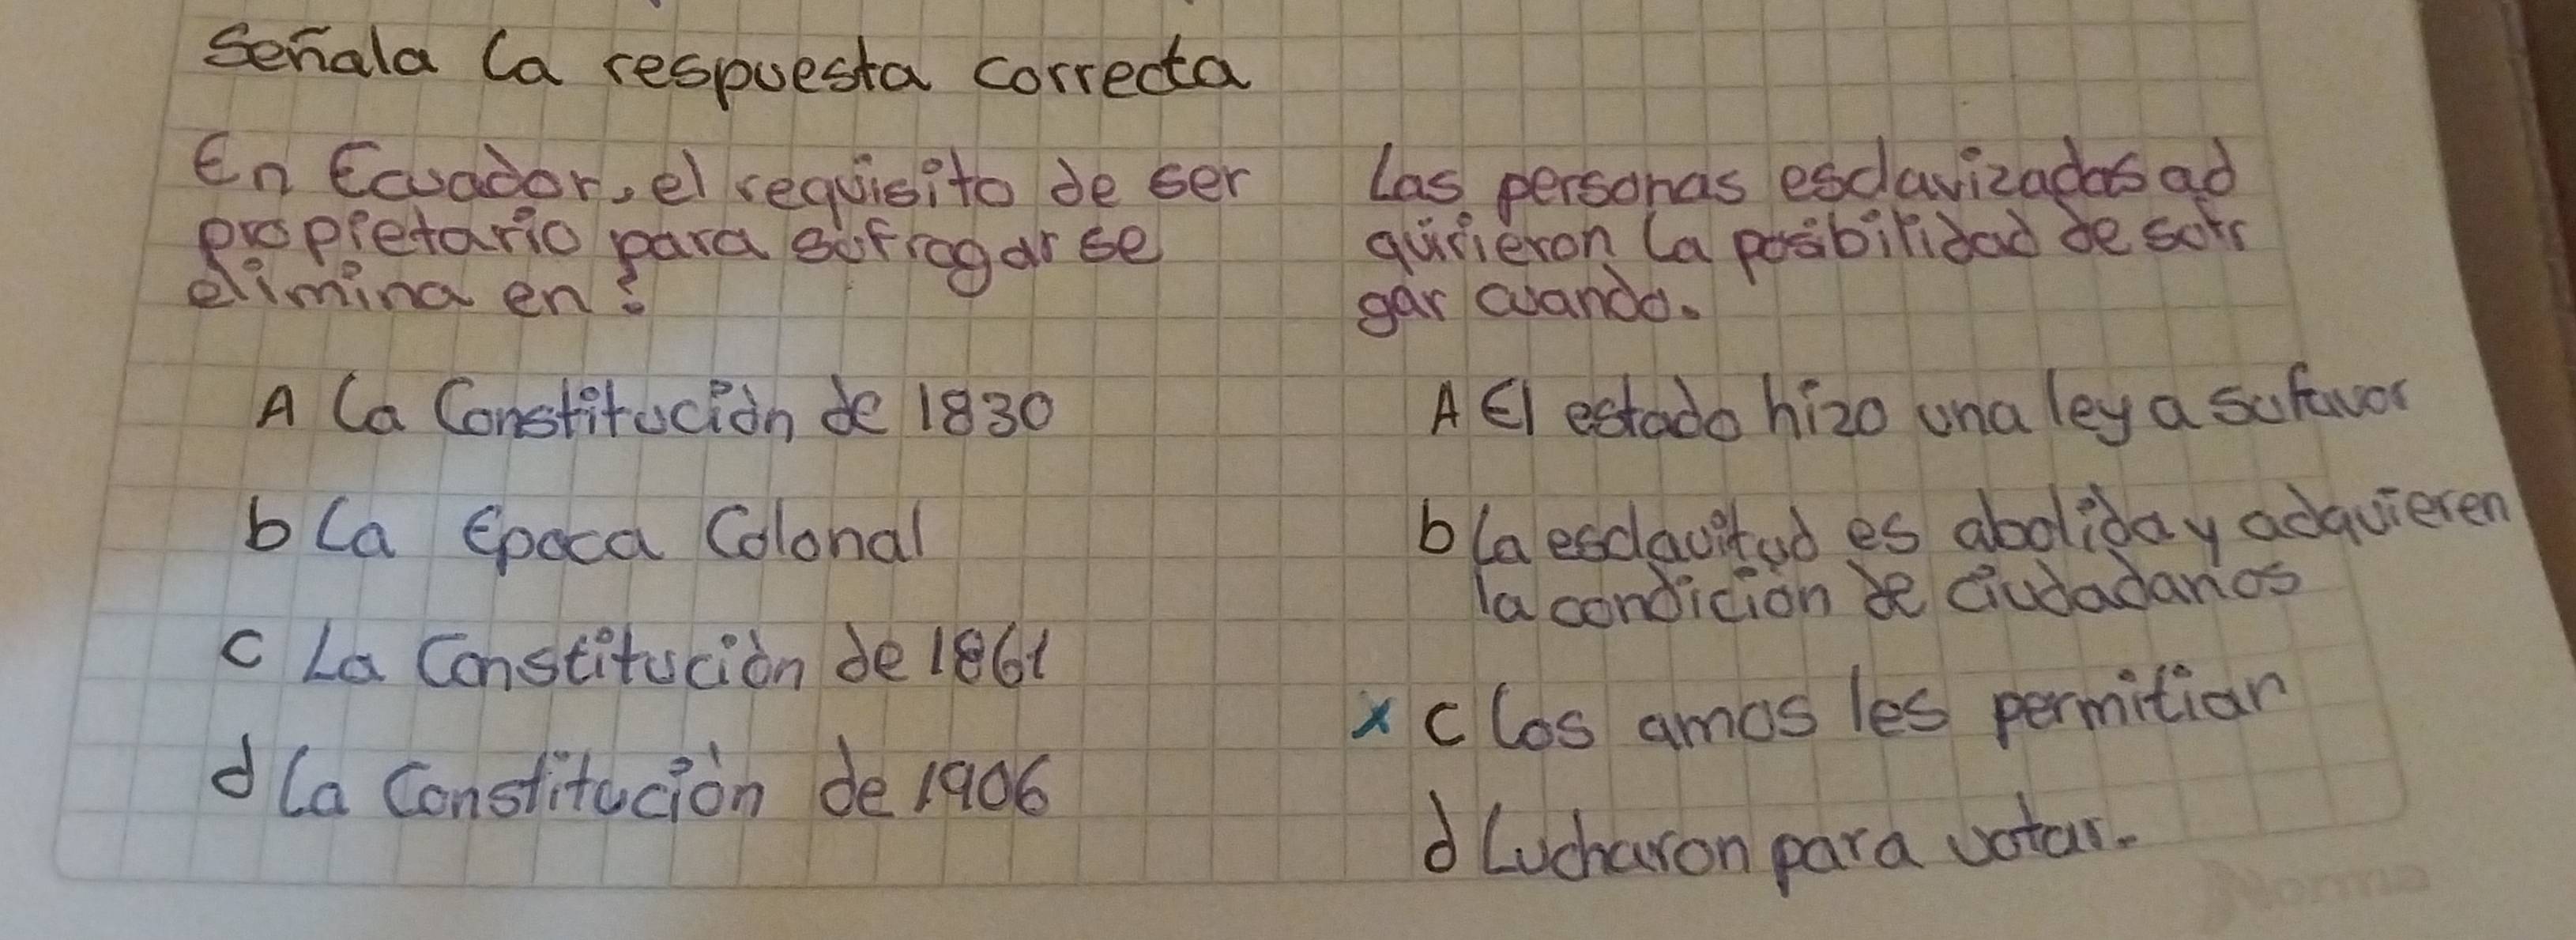 Señala la respuesta correcta
En Ecuador, el requisito de ser
propietario para sufragar se
elimina en:
A La Constitución de 1830
b La Epoca Colonal
C La Constitución de 1861
d La Constitución de 1906
Las personas esclavizadas ad
quirieron la posibilidad de sofr
gar cuando.
A El estado hizo una ley a su favor
b La esclavitud es abolida y adquieren
la condición de ciudadanos
x C Los amos les permitian
d Lucharon para votar.
Norma